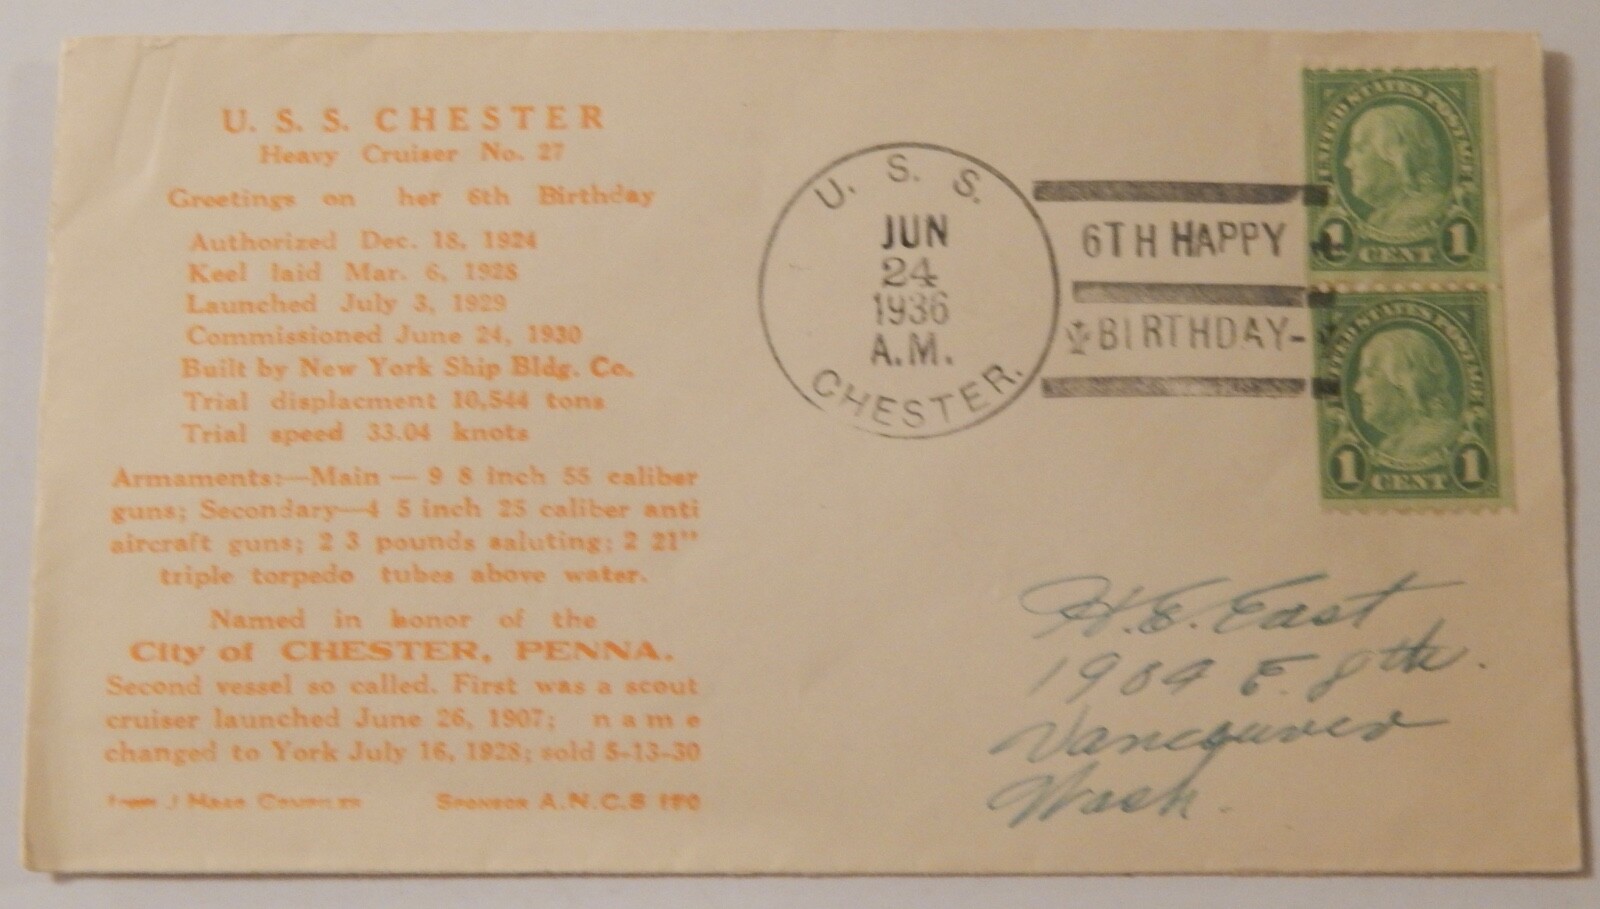 U. S. S. CHESTER
Heavy Cruiser No. 27
Greetings on her 6th Birthday
Authorized Dec. 18, 1924
Keel laid Mar. 6, 1928
Launched July 3, 1929
Commissioned June 24, 1930
Built by New York Ship Bldg. Co.
Trial displacment 10,544 tons
Trial speed 33.04 knots
Armaments:—Main — 9 8 inch 55 caliber
guns; Secondary—4 5 inch 25 caliber anti
aircraft guns; 2 3 pounds saluting; 2 21"
triple torpedo tubes above water.
Named in honor of the
City of CHESTER, PENNA.
Second vessel so called. First was a scout
cruiser launched June 26, 1907; name
changed to York July 16, 1928; sold 5-13-30
J Haas Compiler Sponsor A.N.C.S
U. S. S.
JUN
24
1936
A.M.
CHESTER.
6TH HAPPY
BIRTHDAY-
UNITED STATES POSTAGE
1 CENT 1
UNITED STATES POSTAGE
1 CENT 1
H. E. East
1904 E. 8th.
Vancouver
Wash.